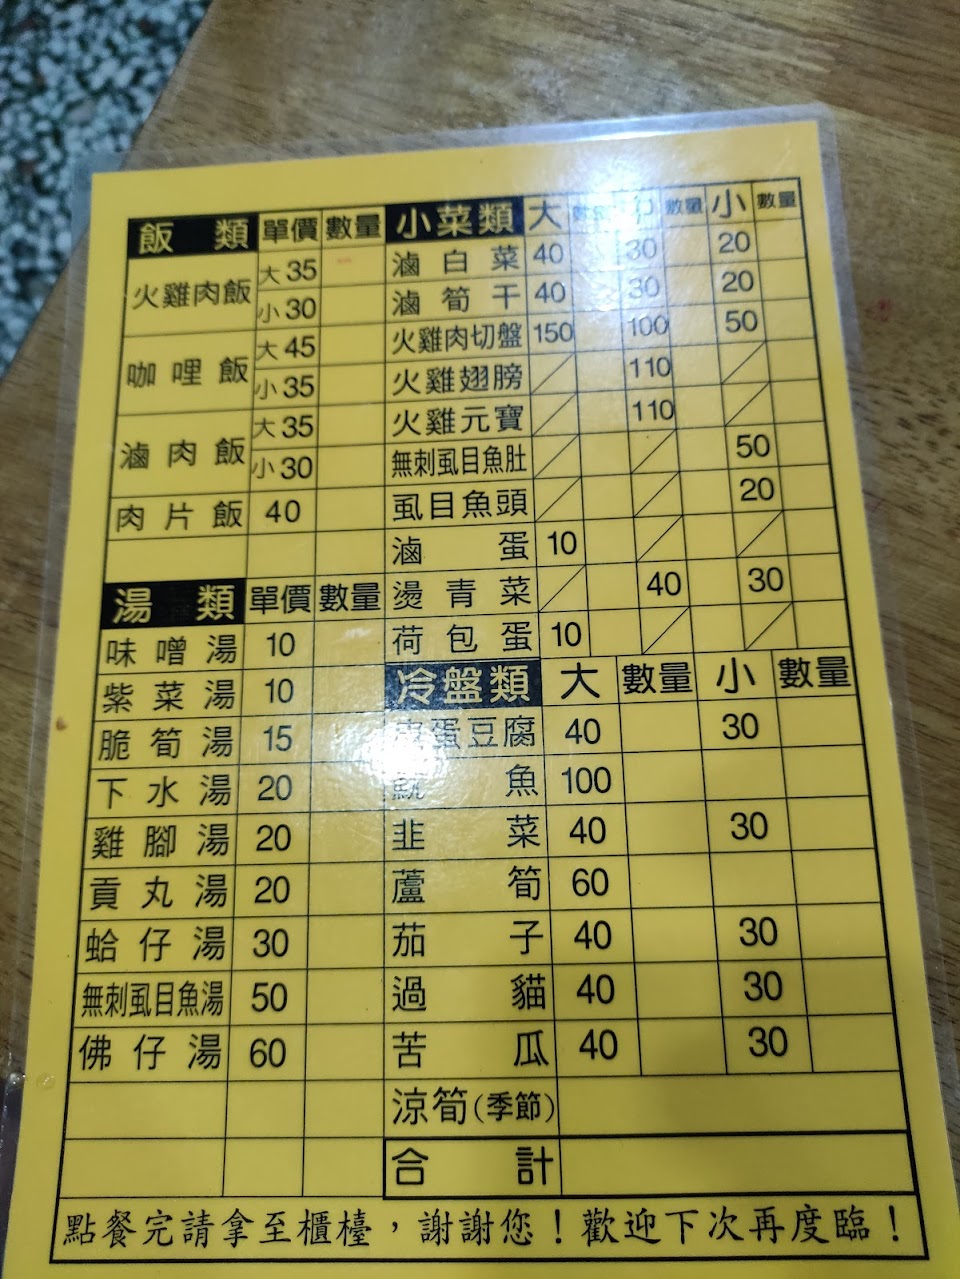 飯類 單價 數量
火雞肉飯 大35
小30
咖哩飯 大45
小35
滷肉飯 大35
小30
肉片飯 40
湯類 單價 數量
味噌湯 10
紫菜湯 10
脆筍湯 15
下水湯 20
雞腳湯 20
貢丸湯 20
蛤仔湯 30
無刺虱目魚湯 50
佛仔湯 60
小菜類 大 數量 中 數量 小 數量
滷白菜 40 30 20
滷筍干 40 30 20
火雞肉切盤 150 100 50
火雞翅膀 110
火雞元寶 110
無刺虱目魚肚 50
虱目魚頭 20
滷蛋 10
燙青菜 40 30
荷包蛋 10
冷盤類 大 數量 小 數量
皮蛋豆腐 40 30
魷魚 100
韭菜 40 30
蘆筍 60
茄子 40 30
過貓 40 30
苦瓜 40 30
涼筍(季節)
合計
點餐完請拿至櫃檯，謝謝您！歡迎下次再度臨！